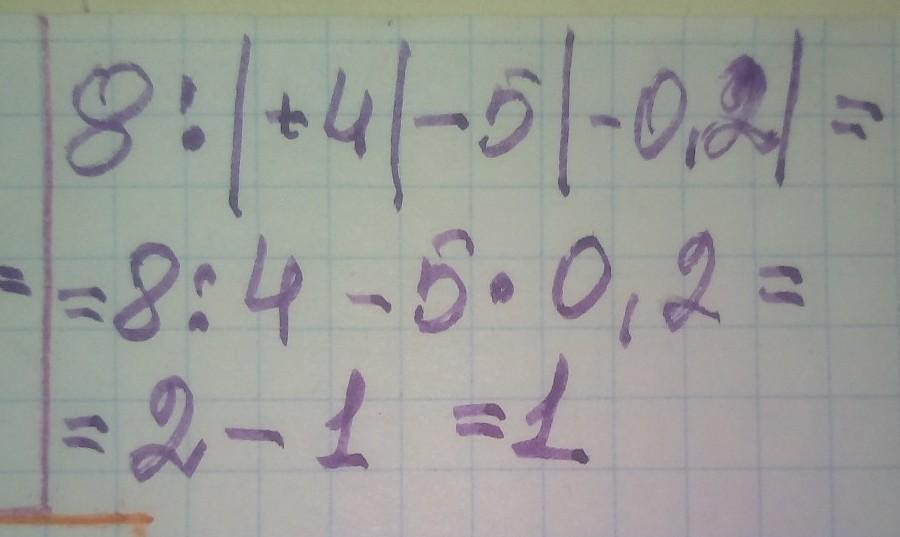 8:|+4|-5|-0,2|=
=8:4-5·0,2=
=2-1=1